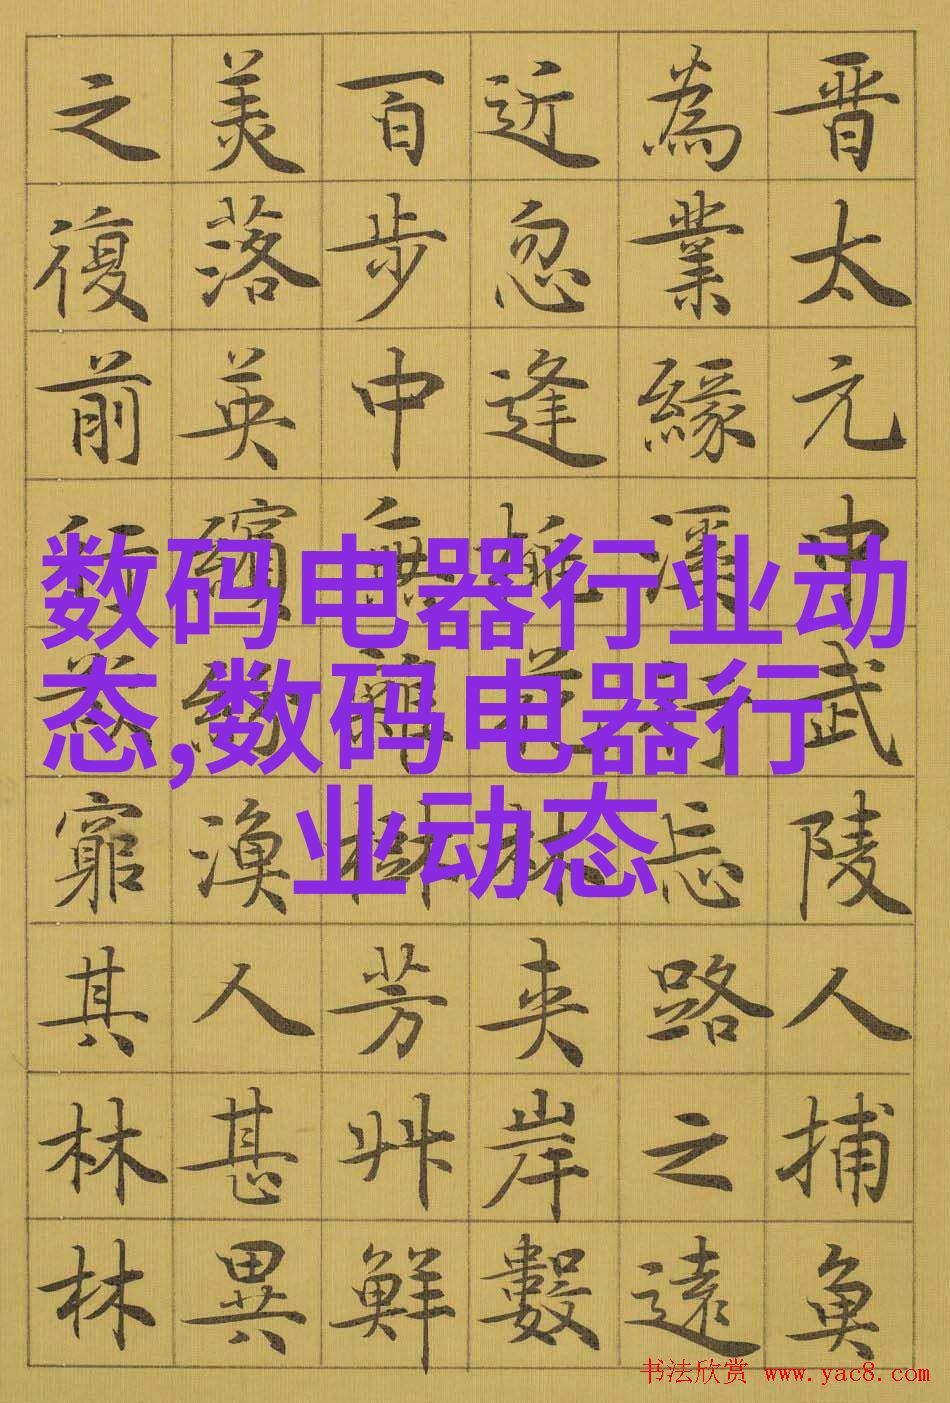 晋太元中武陵人捕魚
為業緣溪行忘路之遠
近忽逢桃花林夾岸數
百步中無雜樹芳艸鮮
美落英繽紛漁人甚異
之復前行窮其林林
数码电器行业动
态,数码电器行
业动态
书法欣赏 www.yac8.com